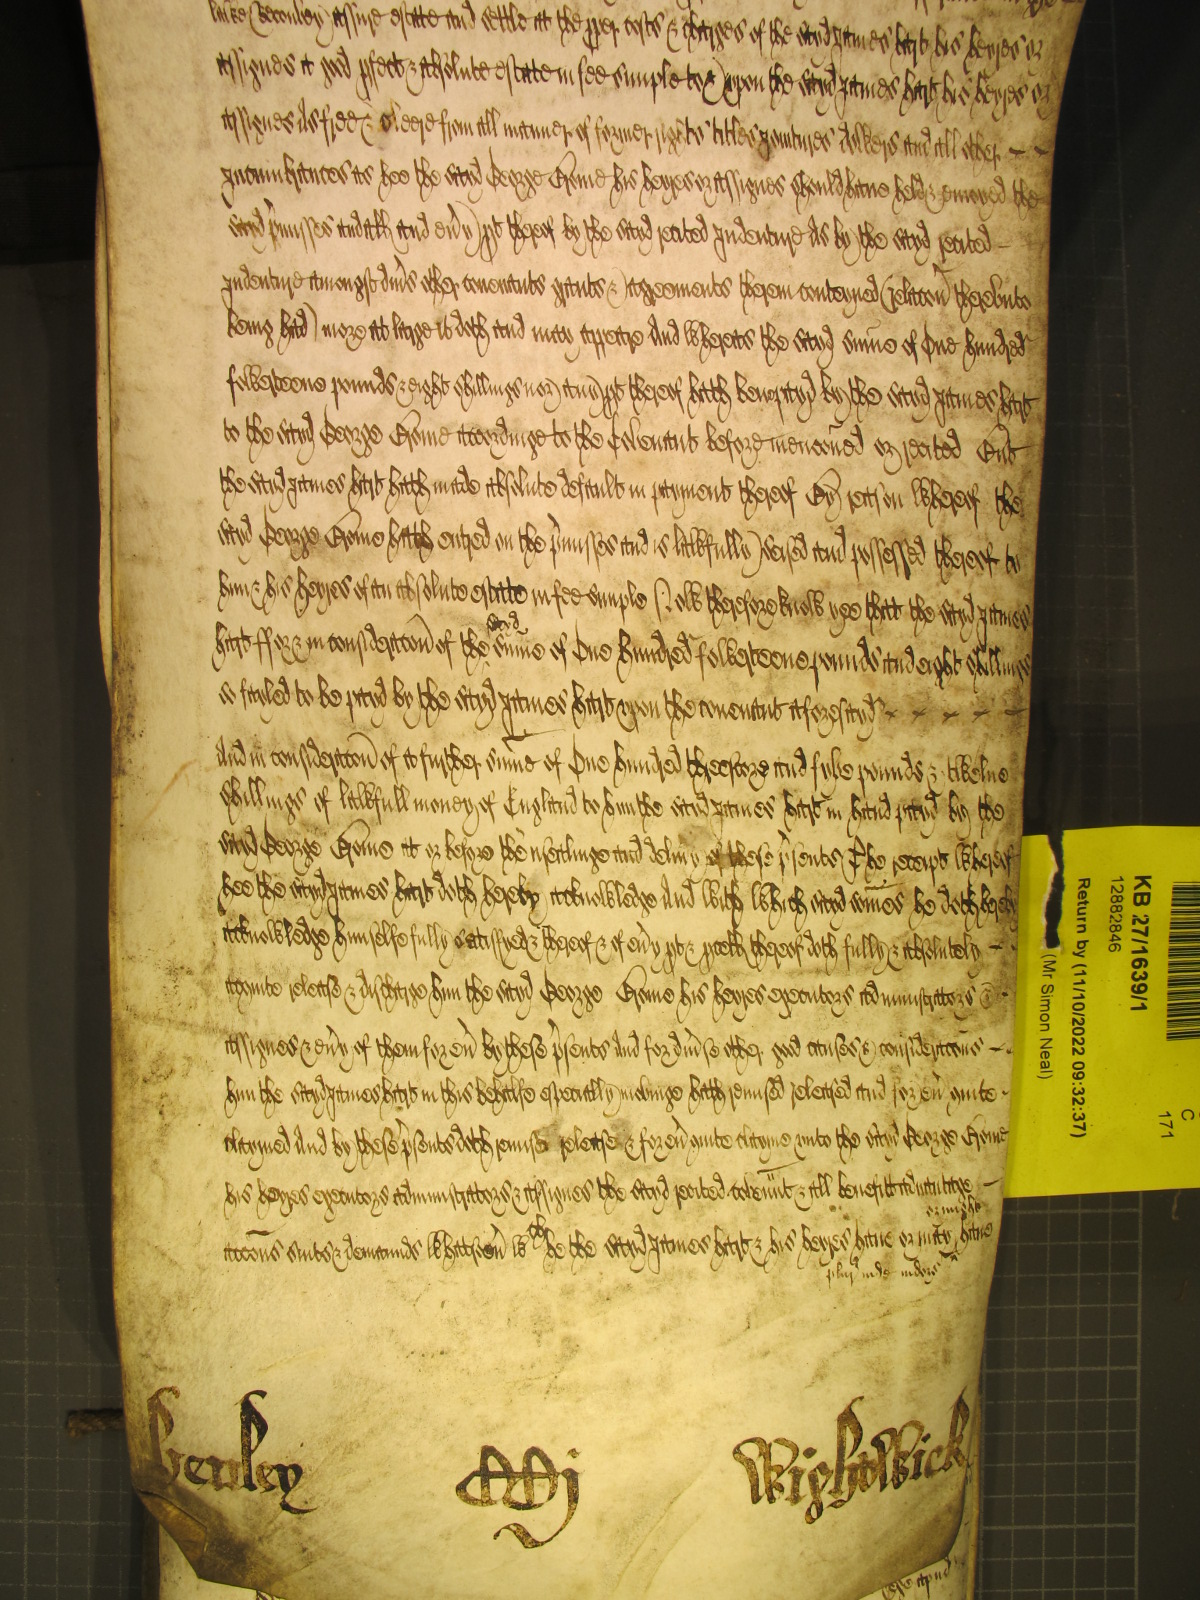 assure estate and settle att the pper costs & charges of the sayd James Hart his heyres or
assignes a good pfect & absolute estate in fee simple to & upon the sayd James Hart his heyres or
assignes As free & cleere from all manner of former rights titles joyntures dowers and all other
Incumbrances as hee the sayd George Crome his heyres or assignes should have held & enioyed the
sayd p'misses and each and ev'y pt thereof by the sayd recited Indenture As by the sayd recited
Indenture amongst div's other covenants grants & agreements therein conteyned (relacon thereunto
being had) more at large it doth and may appeare And whereas the sayd summe of One hundred
fowerteene pounds & eight shillings nor any pt thereof hath bene payd by the sayd James Hart
to the sayd George Crome accordinge to the Covenant before menconed or recited But
the sayd James Hart hath made absolute default in payment thereof By reason whereof the
sayd George Crome hath entred on the p'misses and is lawfully seised and possessed thereof to
him & his heyres of an absolute estate in fee simple Now therefore know yee that the sayd James
Hart ffor & in consideracon of the sayd summe of One hundred fowerteene pounds and eight shillings
so fayled to be payd by the sayd James Hart upon the covenant aforesayd
And in consideracon of a further summe of One hundred threescore and fyve pounds & twelve
shillings of lawfull money of England to him the sayd James Hart in hand payd by the
sayd George Crome at or before the insealinge and deliv'y of these p'sents The receipt whereof
hee the sayd James Hart doth hereby acknowledge And with which sayd somes he doth hereby
acknowledge himselfe fully satisfyed & thereof & of ev'y pt & pcell thereof doth fully & absolutely
acquite release & discharge him the sayd George Crome his heyres executors administrators &
assignes & ev'y of them for ev' by these p'sents And for div'se other good causes & consideracons
him the sayd James Hart in this behalfe especially movinge hath remised released and for ev' quite
claymed And by these p'sents doth remise release & for ev' quite clayme unto the sayd George Crome
his heyres executors administrators & assignes the sayd recited covenant & all benefitt advantage
or might
accons suits & demands whatsoev' wch he the sayd James Hart & his heyres have or may have
Henley CCCj Wightwick
KB 27/1639/1
12882846
Return by (11/10/2022 09:32:37)
(Mr Simon Neal)
C
171